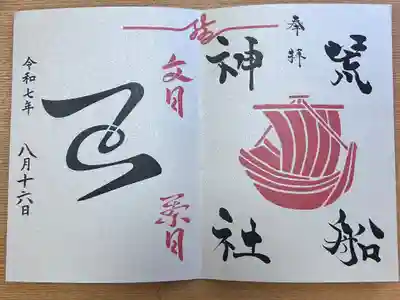 荒船
奉拝
神社
文月
葉月
令和七年
八月十六日